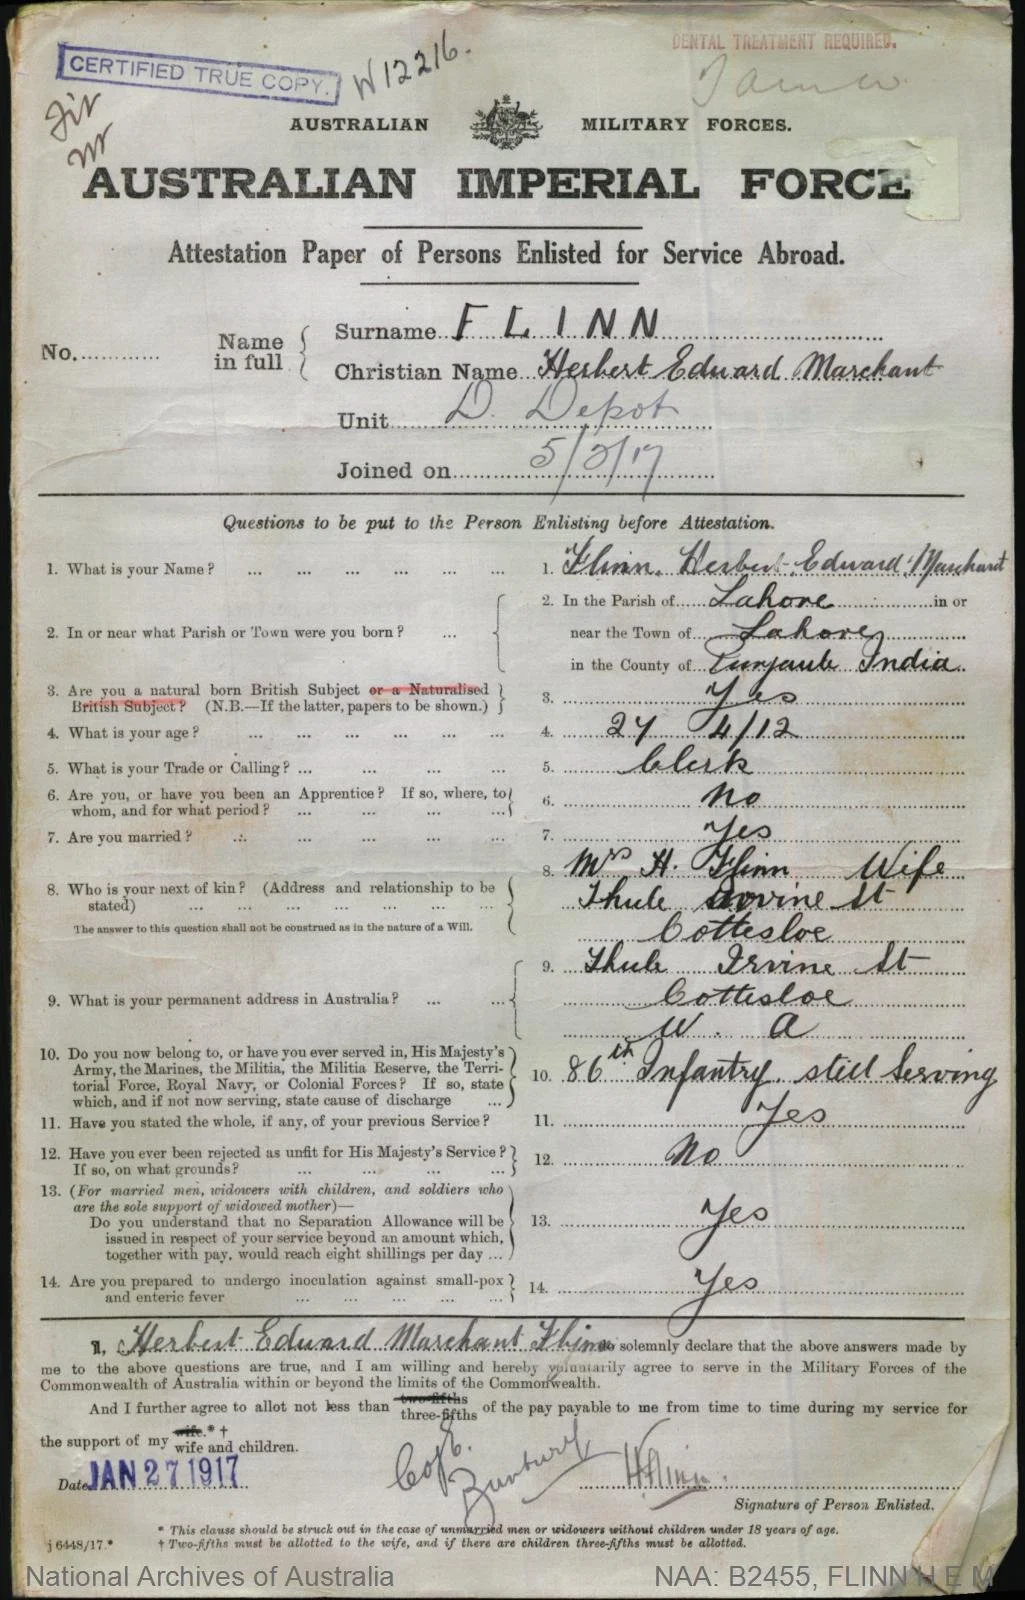 DENTAL TREATMENT REQUIRED.
CERTIFIED TRUE COPY.
W12216.
AUSTRALIAN MILITARY FORCES.
AUSTRALIAN IMPERIAL FORCE
Attestation Paper of Persons Enlisted for Service Abroad.
No. Name in full { Surname FLINN
Christian Name Herbert Edward Marchant
Unit D. Depot
Joined on 5/3/17
Questions to be put to the Person Enlisting before Attestation.
1. What is your Name? ... ... ... ... ... ... 1. Flinn. Herbert Edward Marchant
2. In or near what Parish or Town were you born? ... 2. In the Parish of Lahore in or
near the Town of Lahore
in the County of Punjaub India.
3. Are you a natural born British Subject or a Naturalised
British Subject? (N.B.—If the latter, papers to be shown.) 3. Yes
4. What is your age? ... ... ... ... ... ... 4. 27 4/12
5. What is your Trade or Calling? ... ... ... ... 5. Clerk
6. Are you, or have you been an Apprentice? If so, where, to
whom, and for what period? ... ... ... ... 6. No
7. Are you married? ... ... ... ... ... 7. Yes
8. Who is your next of kin? (Address and relationship to be
stated) ... ... ... ... ... ... ...
The answer to this question shall not be construed as in the nature of a Will.
8. Mrs H. Flinn Wife
Thule Irvine St
Cottesloe
9. What is your permanent address in Australia? ... ... 9. Thule Irvine St
Cottesloe
W. A
10. Do you now belong to, or have you ever served in, His Majesty's
Army, the Marines, the Militia, the Militia Reserve, the Terri-
torial Force, Royal Navy, or Colonial Forces? If so, state
which, and if not now serving, state cause of discharge ...
10. 86th Infantry. still Serving
11. Have you stated the whole, if any, of your previous Service? 11. Yes
12. Have you ever been rejected as unfit for His Majesty's Service?
If so, on what grounds? ... ... ... ... 12. No
13. (For married men, widowers with children, and soldiers who
are the sole support of widowed mother)—
Do you understand that no Separation Allowance will be
issued in respect of your service beyond an amount which,
together with pay, would reach eight shillings per day ...
13. Yes
14. Are you prepared to undergo inoculation against small-pox
and enteric fever ... ... ... ... ... 14. Yes
I, Herbert Edward Marchant Flinn do solemnly declare that the above answers made by
me to the above questions are true, and I am willing and hereby voluntarily agree to serve in the Military Forces of the
Commonwealth of Australia within or beyond the limits of the Commonwealth.
And I further agree to allot not less than two-fifths three-fifths of the pay payable to me from time to time during my service for
the support of my wife.*† wife and children.
Date JAN 27 1917
H Flinn.
Signature of Person Enlisted.
* This clause should be struck out in the case of unmarried men or widowers without children under 18 years of age.
j 6448/17.* † Two-fifths must be allotted to the wife, and if there are children three-fifths must be allotted.
National Archives of Australia NAA: B2455, FLINN H E M